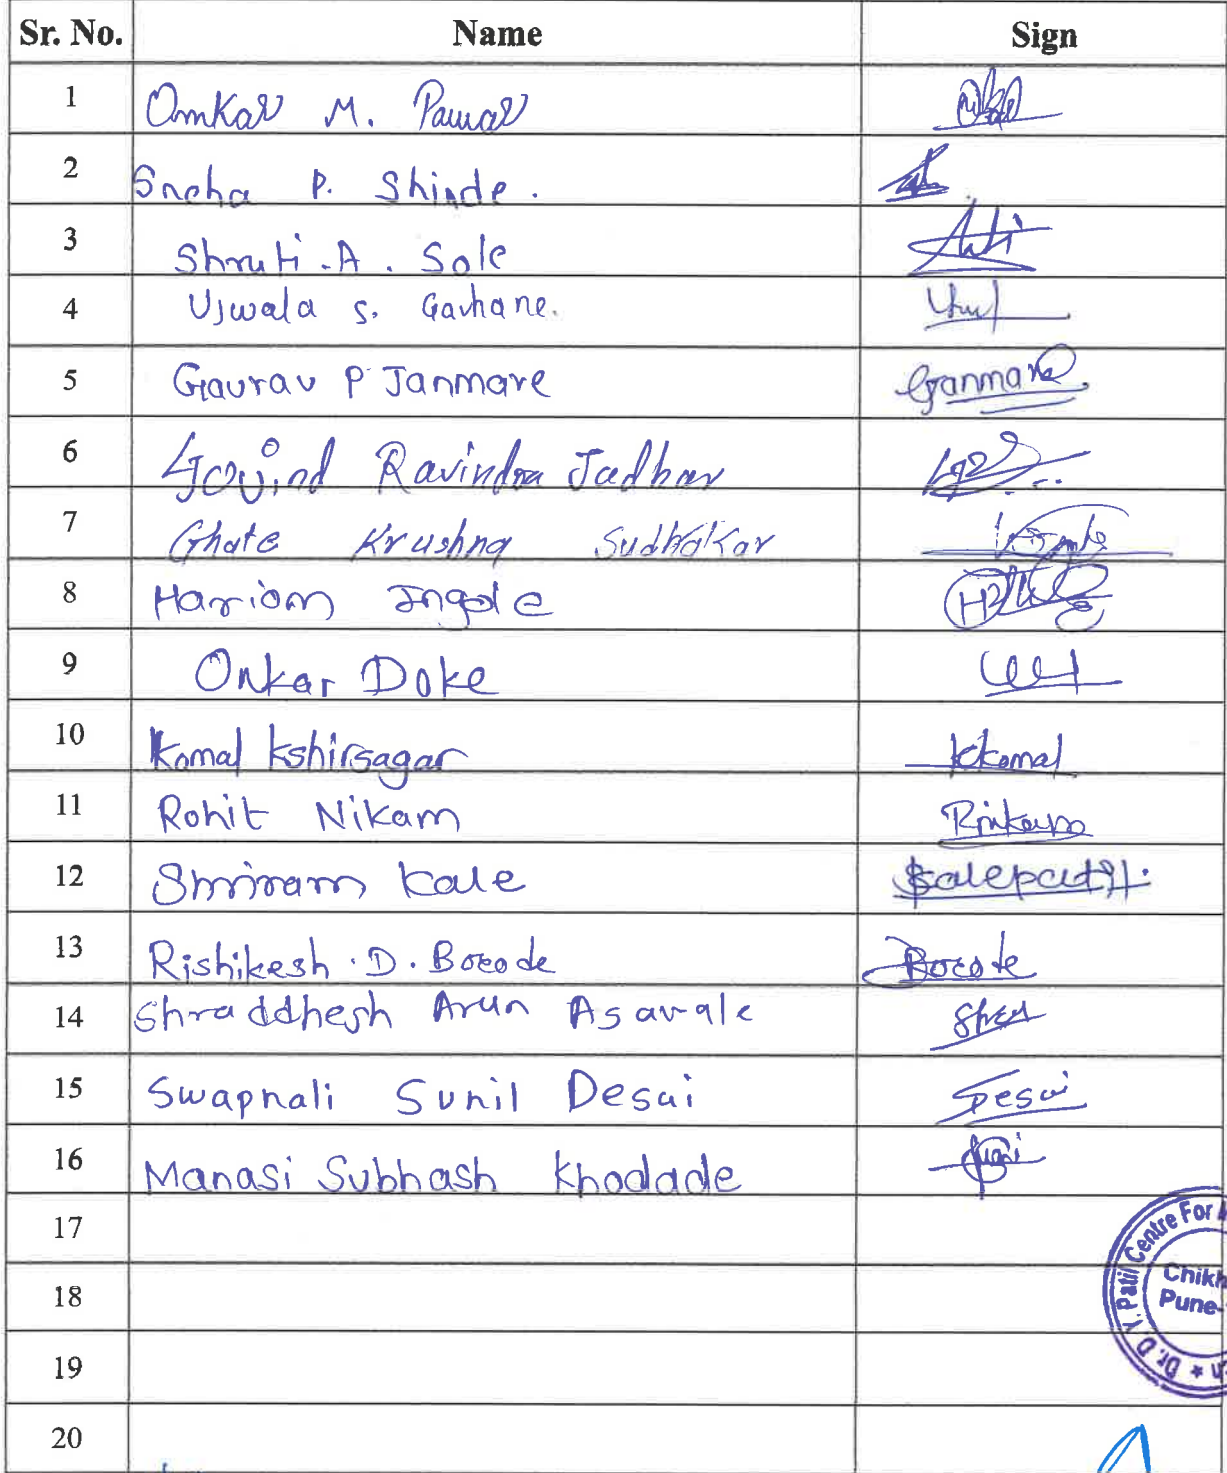 Sr. No. Name Sign
1 Omkar M. Pawar
2 Sneha P. Shinde.
3 Shruti .A. Sole
4 Ujwala S. Gavhane.
5 Gaurav P Janmare Ganmare
6 Govind Ravindra Jadhav
7 Ghate Krushna Sudhakar
8 Hariom Ingole
9 Onkar Doke
10 Komal Kshirsagar kkomal
11 Rohit Nikam RNikam
12 Shriram Kale Skalepatil.
13 Rishikesh .D. Bocode Bocode
14 Shraddhesh Arun Asavale
15 Swapnali Sunil Desai Desai
16 Manasi Subhash Khodade
17
18
19
20
Dr. D. Y. Patil Centre For
Chikh
Pune-